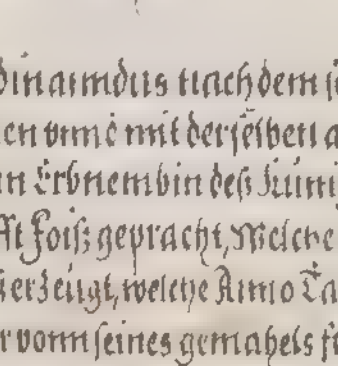 dinanndus nach dem s
en vnnd mit derselben a
n Erbnembin deß Kuni
fft Foiß gepracht, Welche
erzeugt, welche Anno Ta
r vonn seines gemahels f